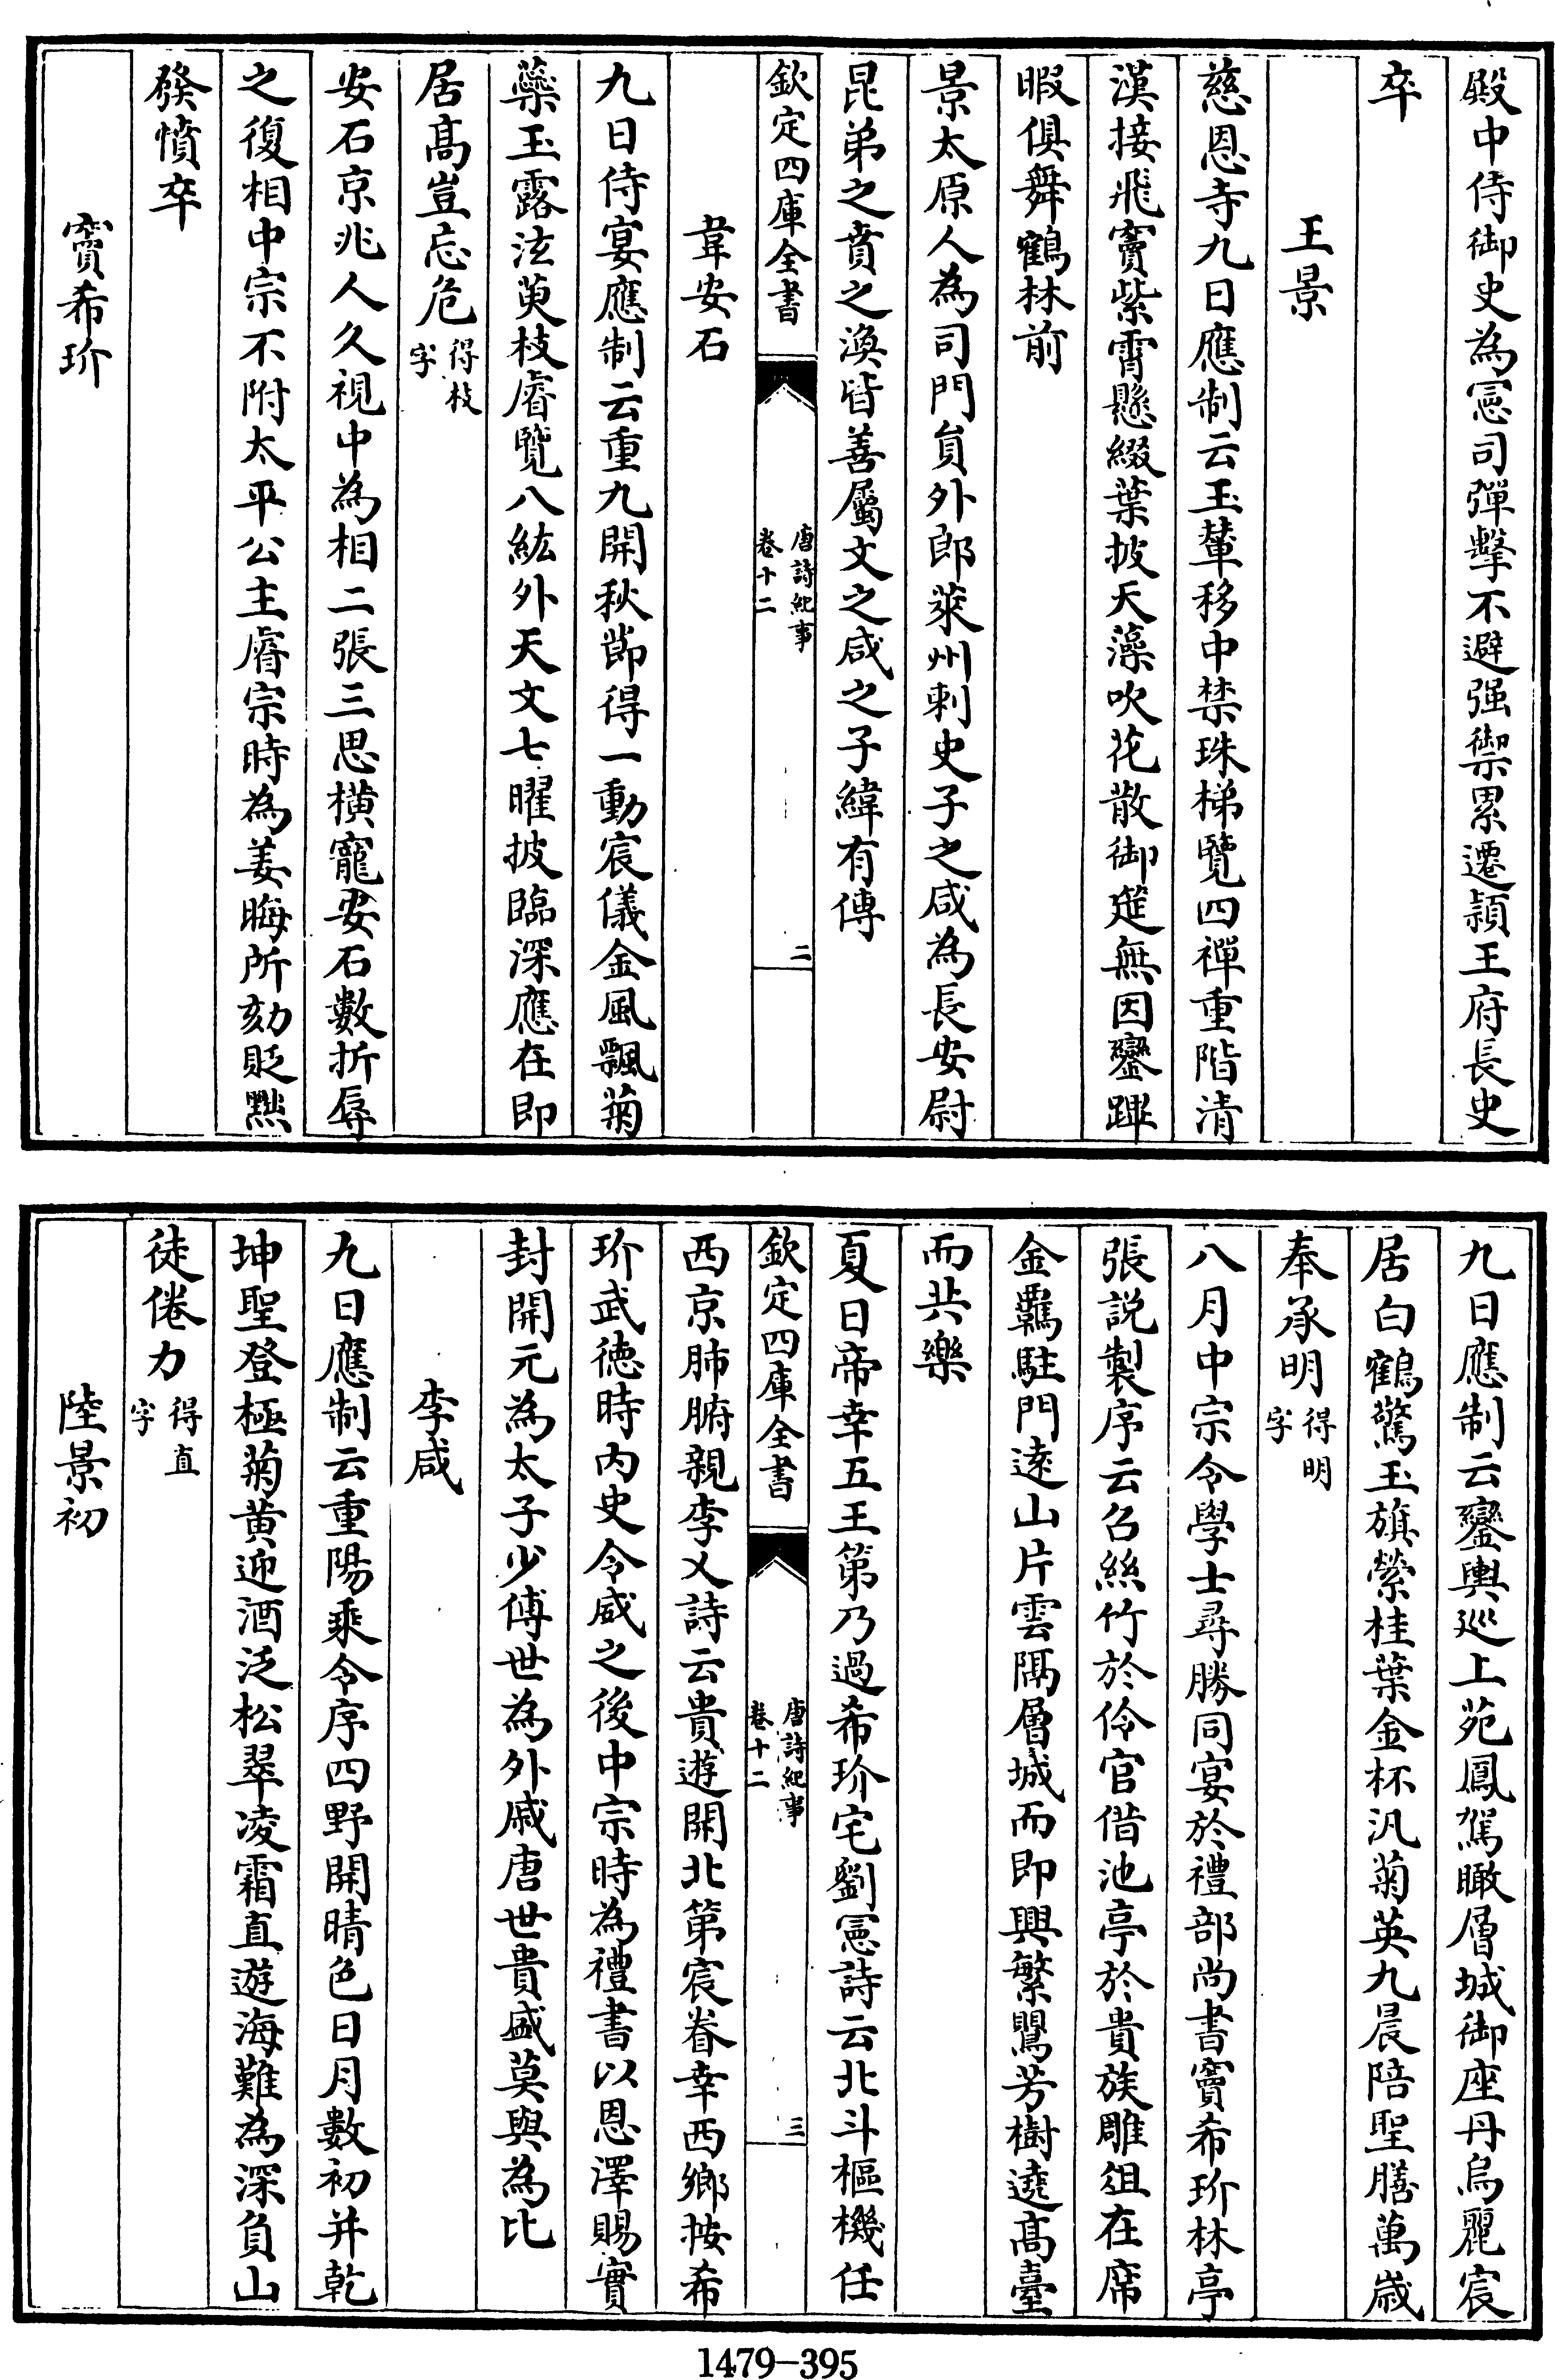 殿中侍御史為憲司彈擊不避强禦累遷潁王府長史
卒
王景
慈恩寺九日應制云玉輦移中禁珠梯覽四禪重階清
漢接飛竇紫霄懸綴葉披天藻吹花散御筵無因鑾蹕
暇俱舞鶴林前
景太原人為司門員外郎萊州刺史子之咸為長安尉
昆弟之賁之渙皆善屬文之咸之子緯有傳
欽定四庫全書
唐詩紀事
卷十二
二
韋安石
九日侍宴應制云重九開秋節得一動宸儀金風飄菊
蘂玉露泫萸枝睿覽八紘外天文七曜披臨深應在即
居高豈忘危得枝
字
安石京兆人久視中為相二張三思横寵安石數折辱
之復相中宗不附太平公主睿宗時為姜晦所劾貶黜
發憤卒
竇希玠
九日應制云鑾輿巡上苑鳳駕瞰層城御座丹烏麗宸
居白鶴驚玉旗縈桂葉金杯汎菊英九晨陪聖膳萬歲
奉承明得明
字
八月中宗令學士尋勝同宴於禮部尚書竇希玠林亭
張説製序云召絲竹於伶官借池亭於貴族雕俎在席
金羈駐門遠山片雲隔層城而即興繁鶯芳樹遶高臺
而共樂
夏日帝幸五王第乃過希玠宅劉憲詩云北斗樞機任
欽定四庫全書
唐詩紀事
卷十二
三
西京肺腑親李乂詩云貴遊開北第宸眷幸西鄉按希
玠武徳時内史令威之後中宗時為禮書以恩澤賜實
封開元為太子少傅世為外戚唐世貴盛莫與為比
李咸
九日應制云重陽乘令序四野開晴色日月數初并乾
坤聖登極菊黄迎酒泛松翠凌霜直遊海難為深負山
徒倦力得直
字
陸景初
1479-395